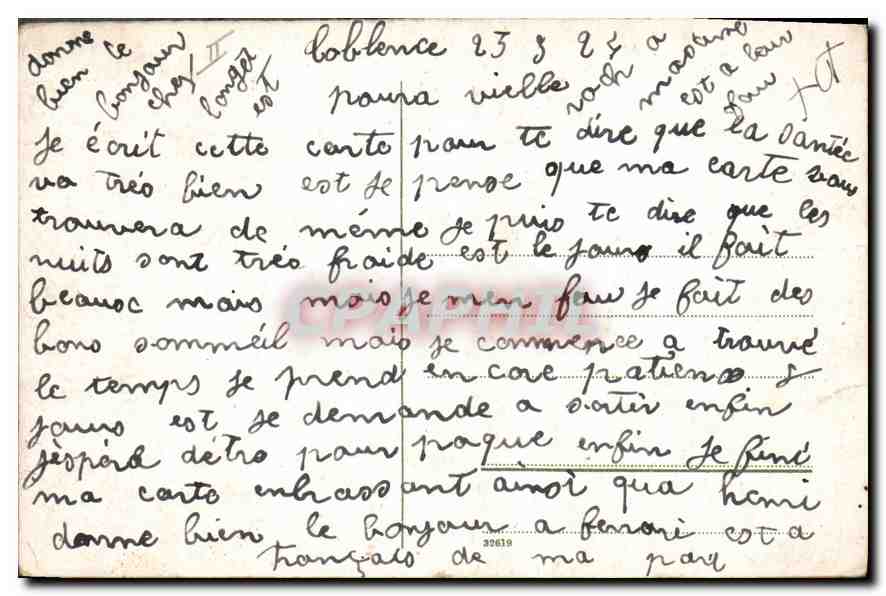 donne bien le bonjour chez longet est
II
Coblence 23 3 24
a masure
est a leur
poura vielle
je écrit cette carte pour te dire que la santée
va tréo bien est je pense que ma carte vous
trouvera de méme je puis te dire que les
nuits sont tréo fraide est le jours il fait
beauoc mais mais je men fou je fait des
bons somméil mais je commence a trouvé
le temps je prend encore patiens
jours est je demande a sortir enfin
jéspéré détre pour paque enfin je finé
ma carte enbrassant ainsi qua henri
donne bien le bonjour a ferrari est a
français de ma part
32619
CPAPHIL